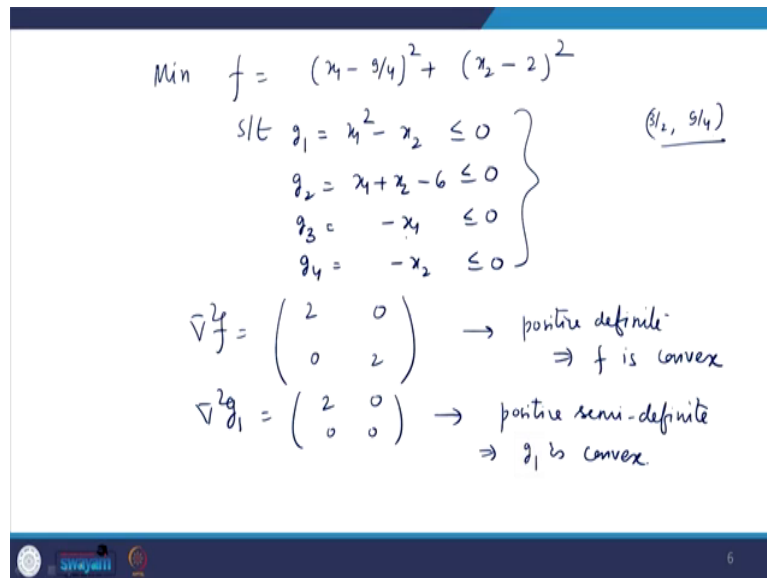 Min f = (x₁ - 9/4)² + (x₂ - 2)²
s/t g₁ = x₁² - x₂ ≤ 0
(3/2, 9/4)
g₂ = x₁ + x₂ - 6 ≤ 0
g₃ = - x₁ ≤ 0
g₄ = - x₂ ≤ 0
∇²f = ( 2 0
0 2 ) → positive definite
⇒ f is convex
∇²g₁ = ( 2 0
0 0 ) → positive semi-definite
⇒ g₁ is convex.
swayam 6